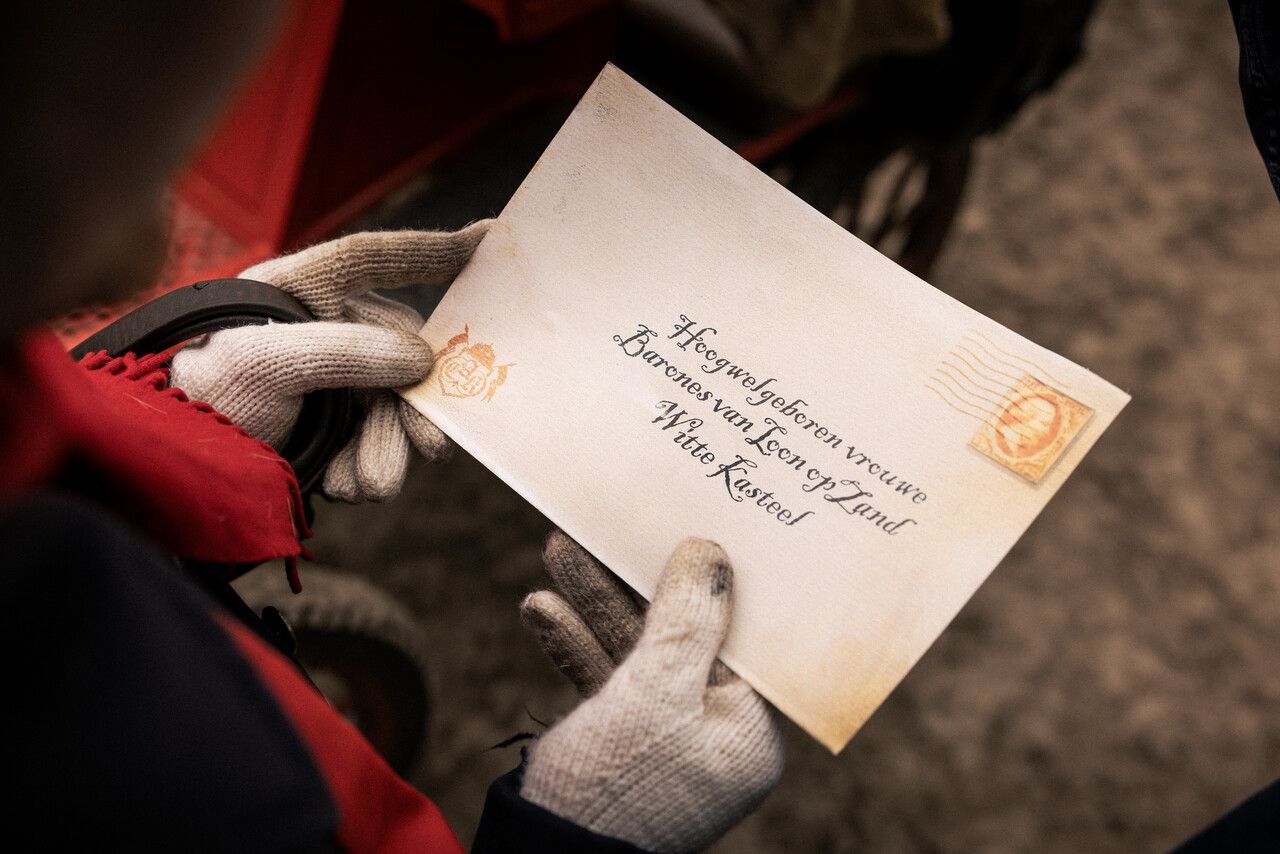 Hoogwelgeboren vrouwe
Barones van Loon op Zand
Witte Kasteel